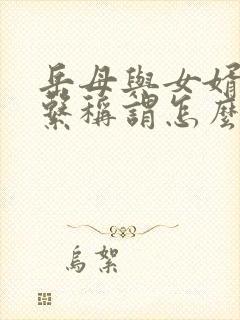 岳母與女婿
繫稱謂怎麼
烏絮